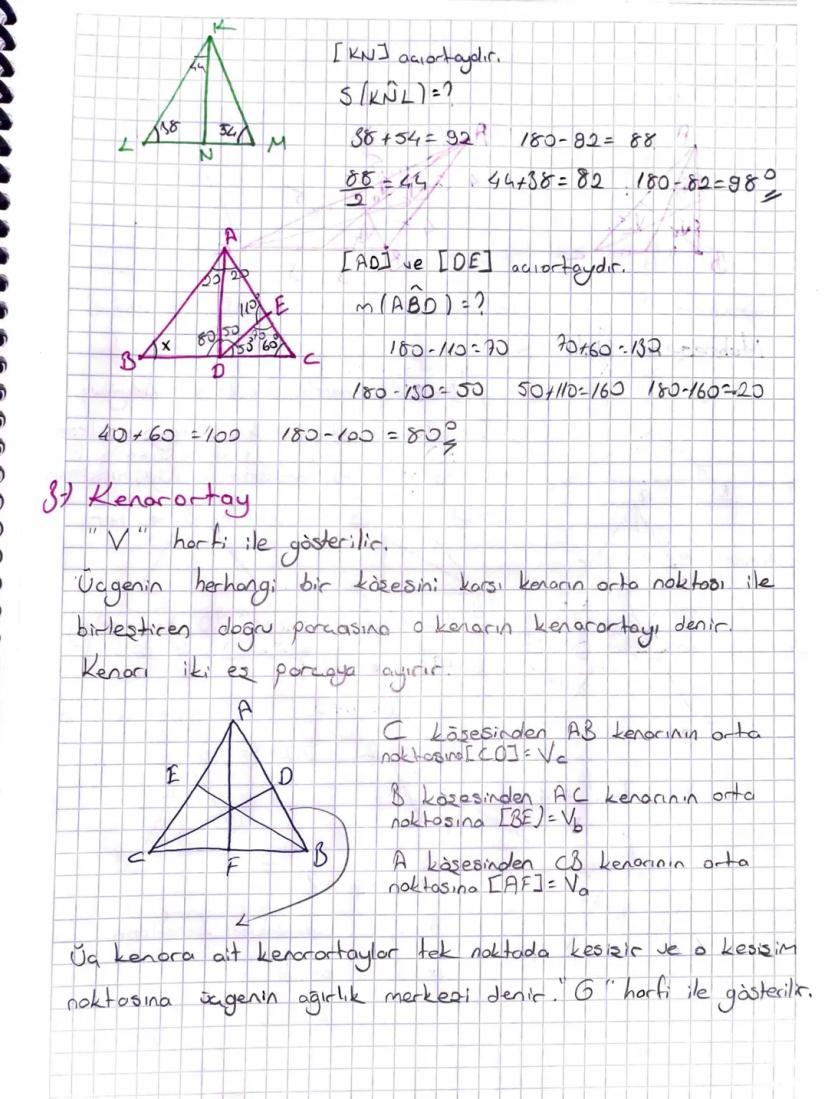 K
44
38
54
L
N
M
[KN] açıortaydır.
S(KN̂L)=?
38+54=92
180-92=88
88/2=44
44+38=82
180-82=98°
A
20 20
110°
E
80 50
50 70 60°
x
B
D
C
[AD] ve [DE] açıortaydır.
m(AB̂D)=?
180-110=70
70+60=130
180-130=50
50+110=160
180-160=20
40+60=100
180-100=80°
3-) Kenarortay
"V" harfi ile gösterilir.
Üçgenin herhangi bir köşesini karşı kenarın orta noktası ile
birleştiren doğru parçasına o kenarın kenarortayı denir.
Kenarı iki eş parçaya ayırır.
A
E
D
C
F
B
C köşesinden AB kenarının orta
noktasına [CD]=Vc
B köşesinden AC kenarının orta
noktasına [BE]=Vb
A köşesinden CB kenarının orta
noktasına [AF]=Va
Üç kenara ait kenarortaylar tek noktada kesişir ve o kesişim
noktasına üçgenin ağırlık merkezi denir. "G" harfi ile gösterilir.